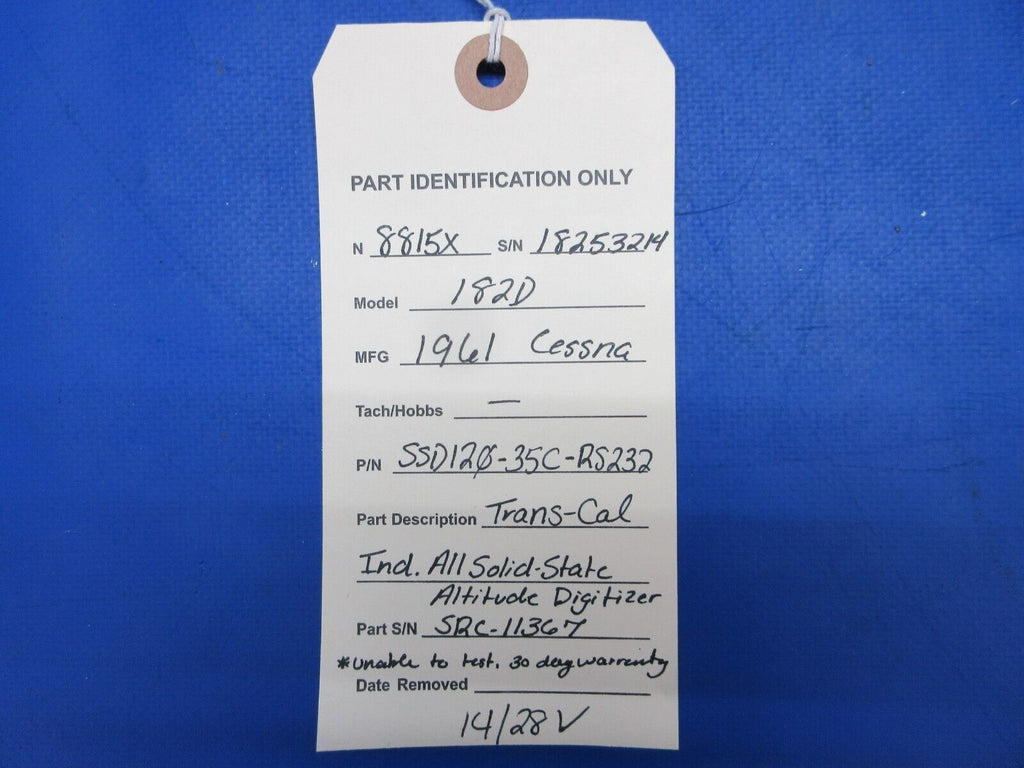 PART IDENTIFICATION ONLY
N 8815X S/N 18253214
Model 182D
MFG 1961 Cessna
Tach/Hobbs —
P/N SSD120-35C-RS232
Part Description Trans-Cal
Ind. All Solid-State
Altitude Digitizer
Part S/N SRC-11367
*unable to test. 30 day warranty
Date Removed
14/28V